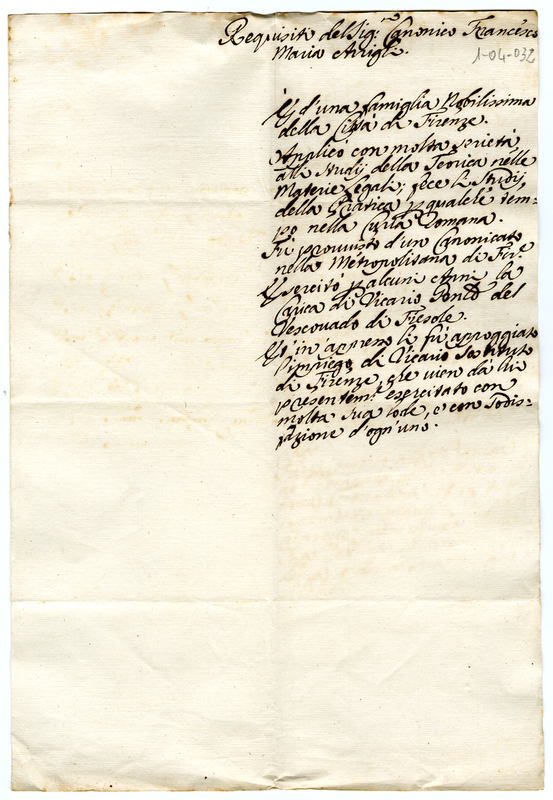 Requisiti del Sig.r Canonico Francesco
Maria Arrighi.
1-04-032
È d'una famiglia Nobilissima
della Città di Firenze.
Applicò con molta serietà
alli Studij della Teorica nelle
Materie legali; fece li Studij
della Prattica p qualche tem-
po nella Curia Romana.
Fù provvisto d'un Canonicato
nella Metropolitana di Fir.e
Esercitò p alcuni Anni la
Carica di Vicario Gen.le del
Vescovado di Fiesole.
Et in appresso li fù appoggiato
l'impiego di Vicario Sostituto
di Firenze, che vien da lui
presentem.e esercitato con
molta sua lode, e con Sodis-
fazione d'ogn'uno.